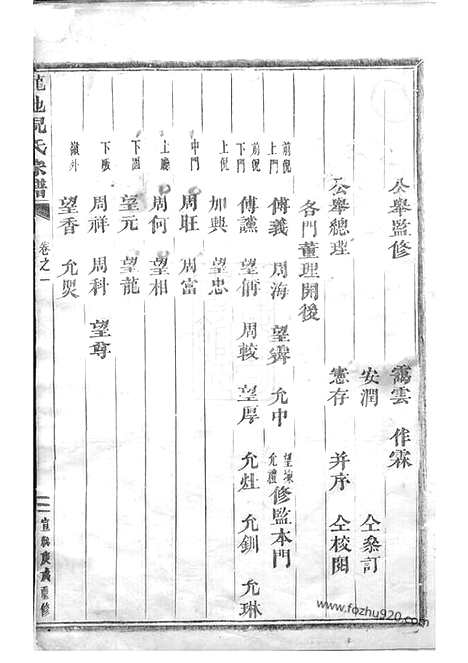 公舉監修 霭雲 作霖
安潤 仝叅訂
公舉總理 憲存 并序 仝校閱
各門董理開後
前倪上門 傅義 周海 望 允中 望 允禮 修監本門
前倪下門 傅讌 望侢 周較 望厚 允灶 允釧 允琳
上倪 加興 望忠
中門 周旺 周富
上廳 周何 望相
下園 望元 望龍
下 周祥 周科 望尊
嶺外 望香 允煛
倪氏宗譜
卷之一
宣統庚戌重修
www.fozhu920.com